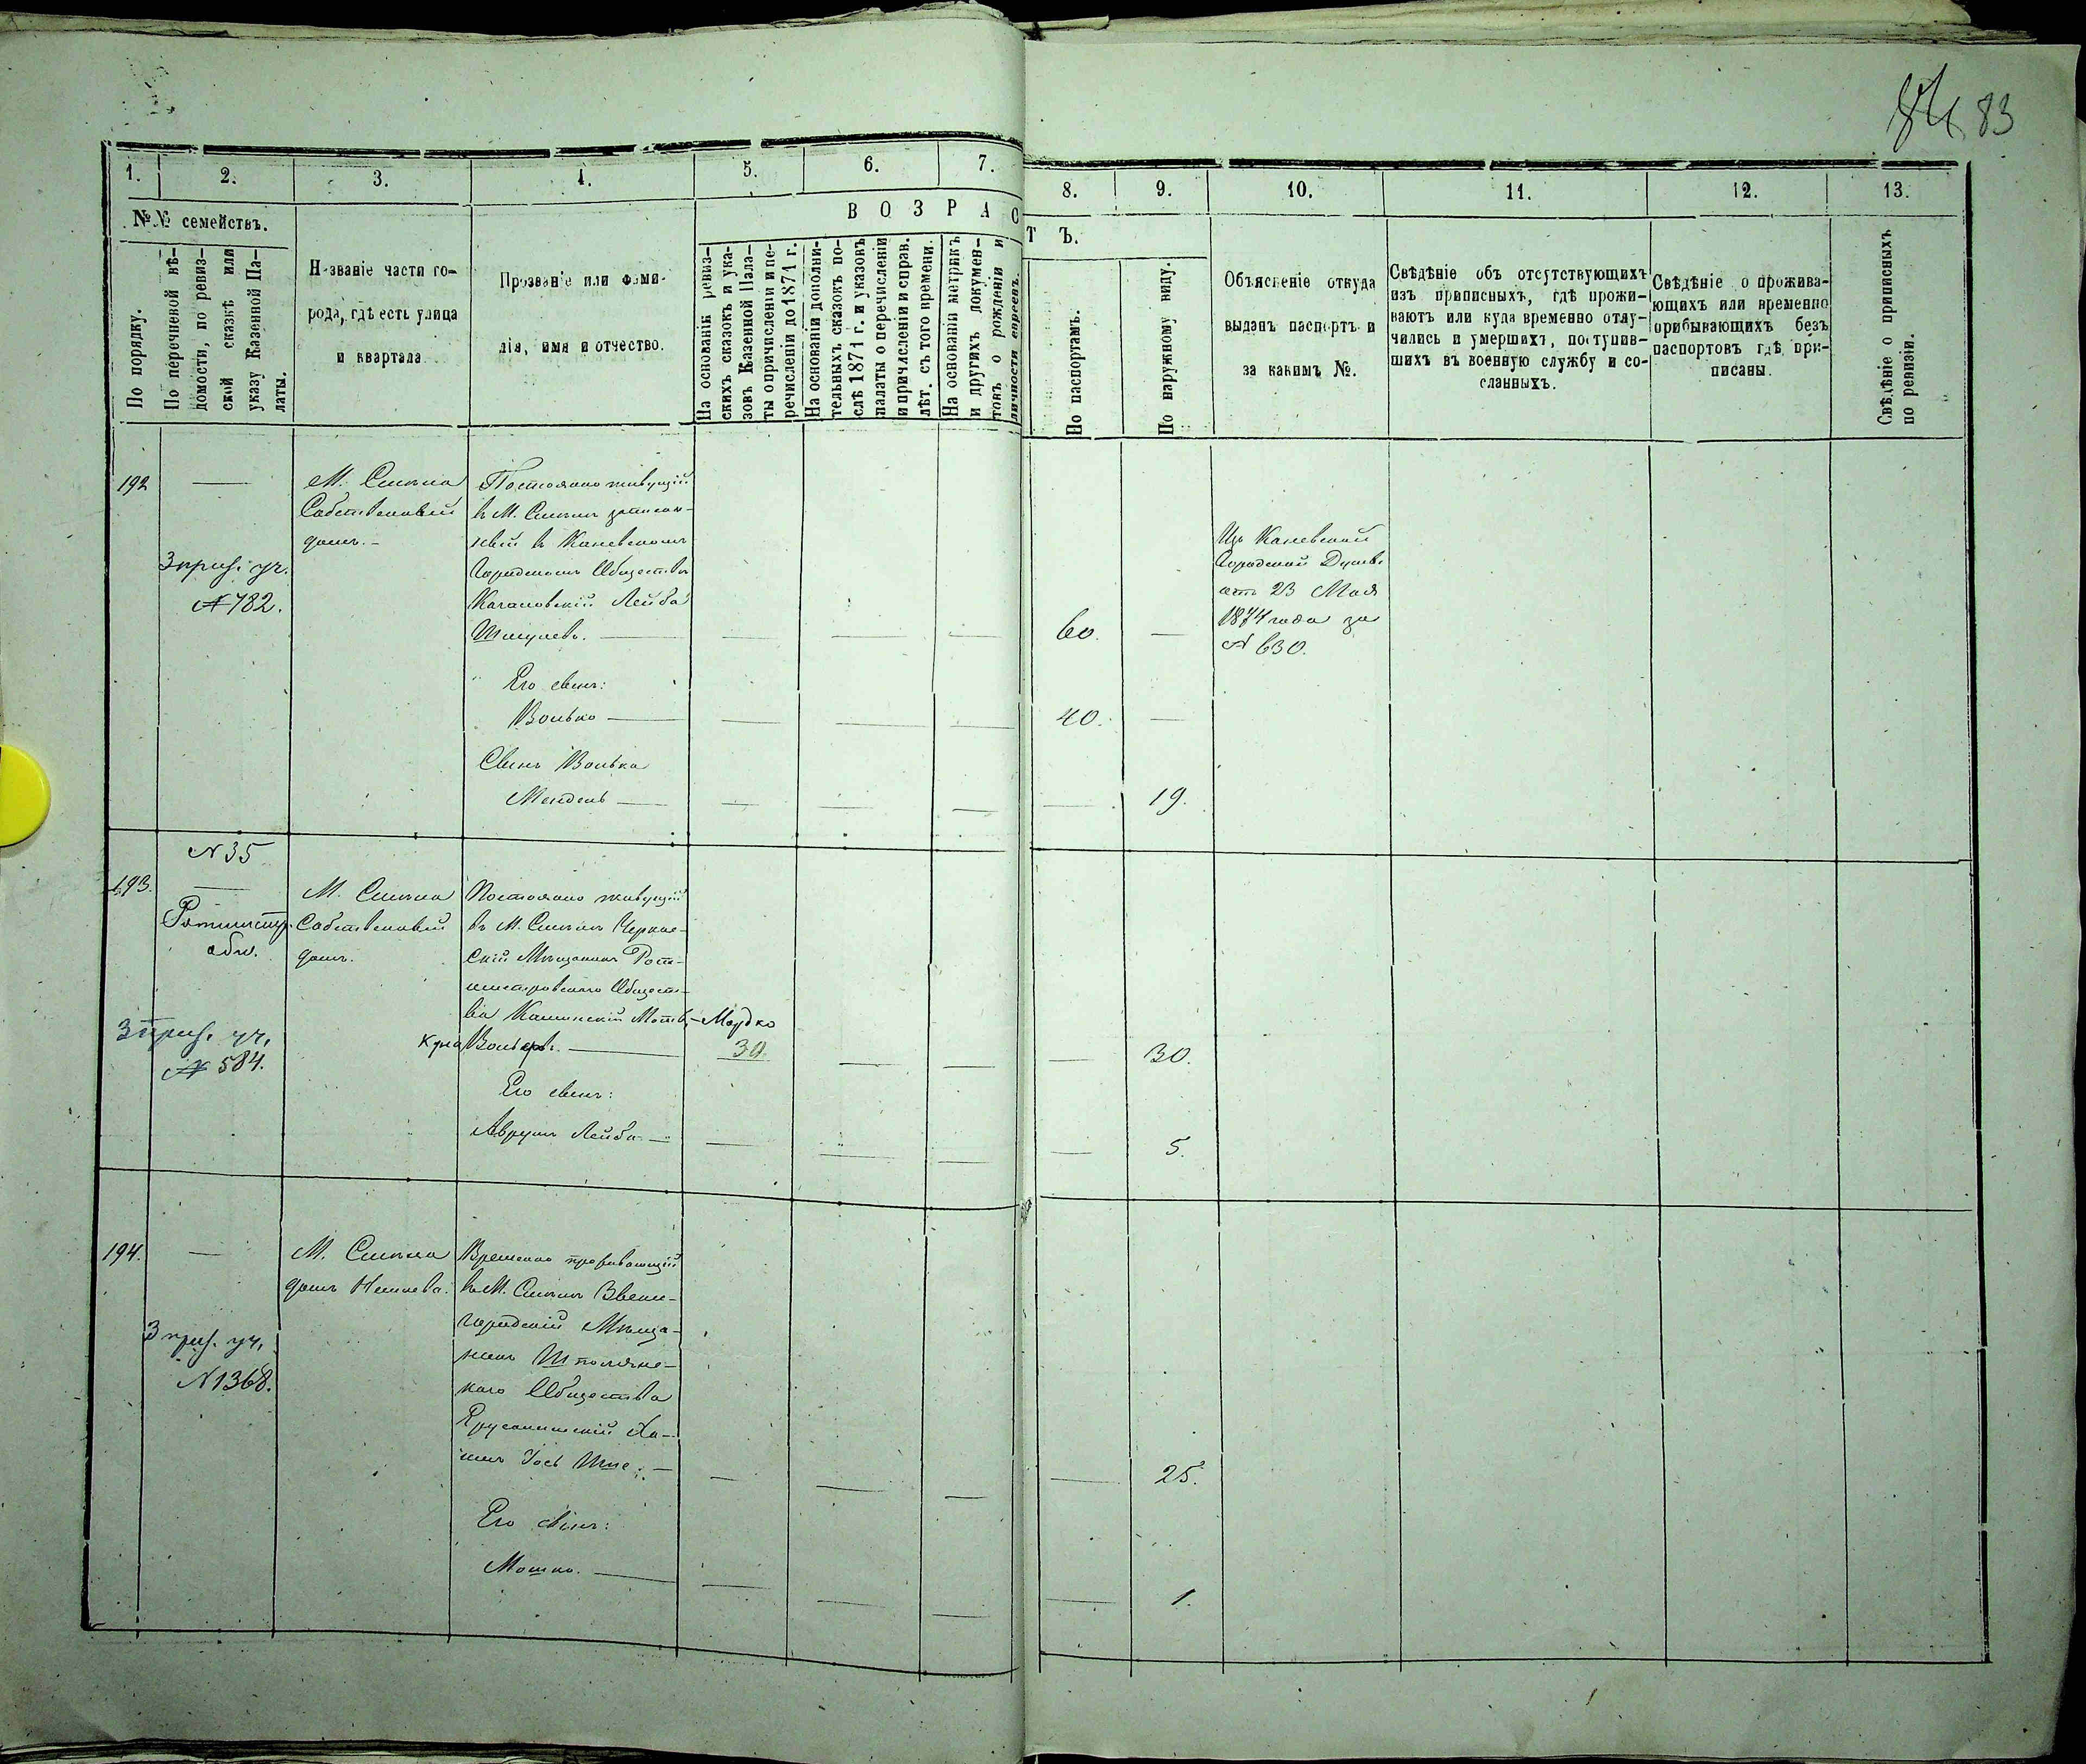 84 83
1. 2. 3. 4. 5. 6. 7. 8. 9. 10. 11. 12. 13.
№№ семействъ.
По порядку.
По перечневой вѣ-
домости, по ревиз-
ской сказкѣ или
указу Казенной Па-
латы.
Названіе части го-
рода, гдѣ есть улица
и квартала
Прозваніе или фами-
лія, имя и отчество.
ВОЗРАСТЪ.
На основаніи ревиз-
скихъ сказокъ и ука-
зовъ Казенной Пала-
ты о причисленіи и пе-
речисленіи до 1871 г.
На основаніи дополни-
тельныхъ сказокъ по-
слѣ 1871 г. и указовъ
палаты о перечисленіи
и причисленіи и справ.
лѣт. съ того времени.
На основаніи метрикъ
и другихъ докумен-
товъ о рожденіи и
личности евреевъ.
По паспортамъ.
По наружному виду.
Объясненіе откуда
выданъ паспортъ и
за какимъ №.
Свѣдѣніе объ отсутствующихъ
изъ приписныхъ, гдѣ прожи-
ваютъ или куда временно отлу-
чились и умершихъ, поступив-
шихъ въ военную службу и со-
сланныхъ.
Свѣдѣніе о прожива-
ющихъ или временно
прибывающихъ безъ
паспортовъ гдѣ при-
писаны.
Свѣдѣніе о приписныхъ
по ревизіи.
192
3 приз. уч.
№ 782.
М. Смѣла
Собственный
домъ.
Постоянно живущій
въ М. Смѣлѣ записан-
ный въ Каневскомъ
Городскомъ Обществѣ
Качановскій Лейба
Шмулевъ. 60.
Изъ Каневской
Городской Думы
отъ 23 Мая
1874 года за
№ 630.
Его сынъ:
Волько 40.
Сынъ Волька
Мендель 19.
№ 35
193.
Ротмистр.
общ.
3 приз. уч.
№ 584.
М. Смѣла
Собственный
домъ.
Постоянно живущій
въ М. Смѣлѣ Черкас-
скій Мѣщанинъ Рот-
мистровскаго Общест-
ва Каминскій Мот - Мордко
30. 30.
Его сынъ:
Аврумъ Лейба 5.
194.
3 приз. уч.
№ 1368.
М. Смѣла
домъ
Временно проживающій
въ М. Смѣлѣ Звени-
городскій Мѣща-
нинъ Шполянс-
каго Общества
Ерусалимскій Ха-
имъ Іось 25.
Его сынъ:
Мошко. 1.